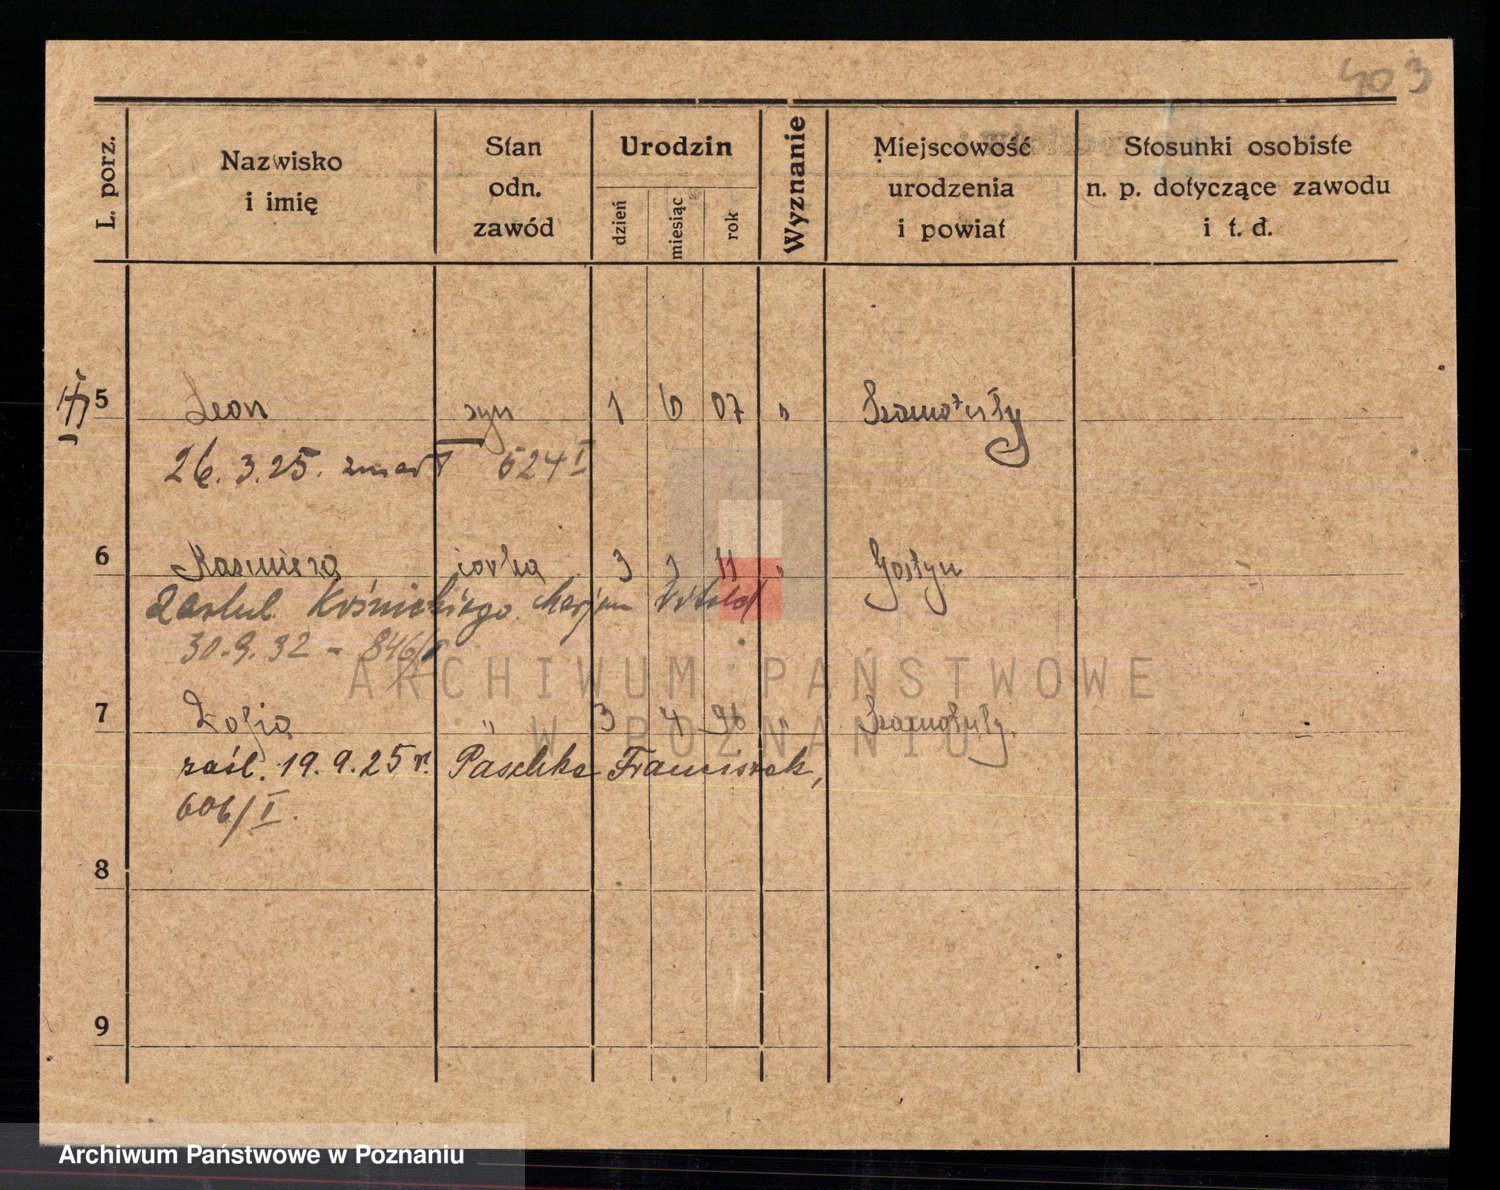 403
L. porz.
Nazwisko
i imię
Stan
odn.
zawód
Urodzin
dzień
miesiąc
rok
Wyznanie
Miejscowość
urodzenia
i powiat
Stosunki osobiste
n. p. dotyczące zawodu
i t. d.
5 Leon syn 1 6 07 " Szamotuły
26.3.25. zmarł 624 I
6 Kazmiera córka 3 11 " Gostyń
zaślub. Marjan Witold
30.9.32 - 846/I
7 Zofja " 3 4 96 " Szamotuły.
zaśl. 19.9.25 r. Paschke Franciszek,
606/I.
8
9
ARCHIWUM PAŃSTWOWE
W POZNANIU
Archiwum Państwowe w Poznaniu